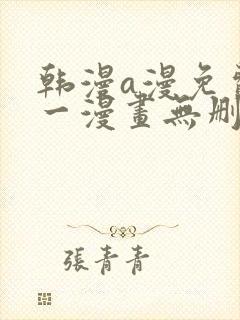 韩漫a漫免
一漫畫無刪
張青青